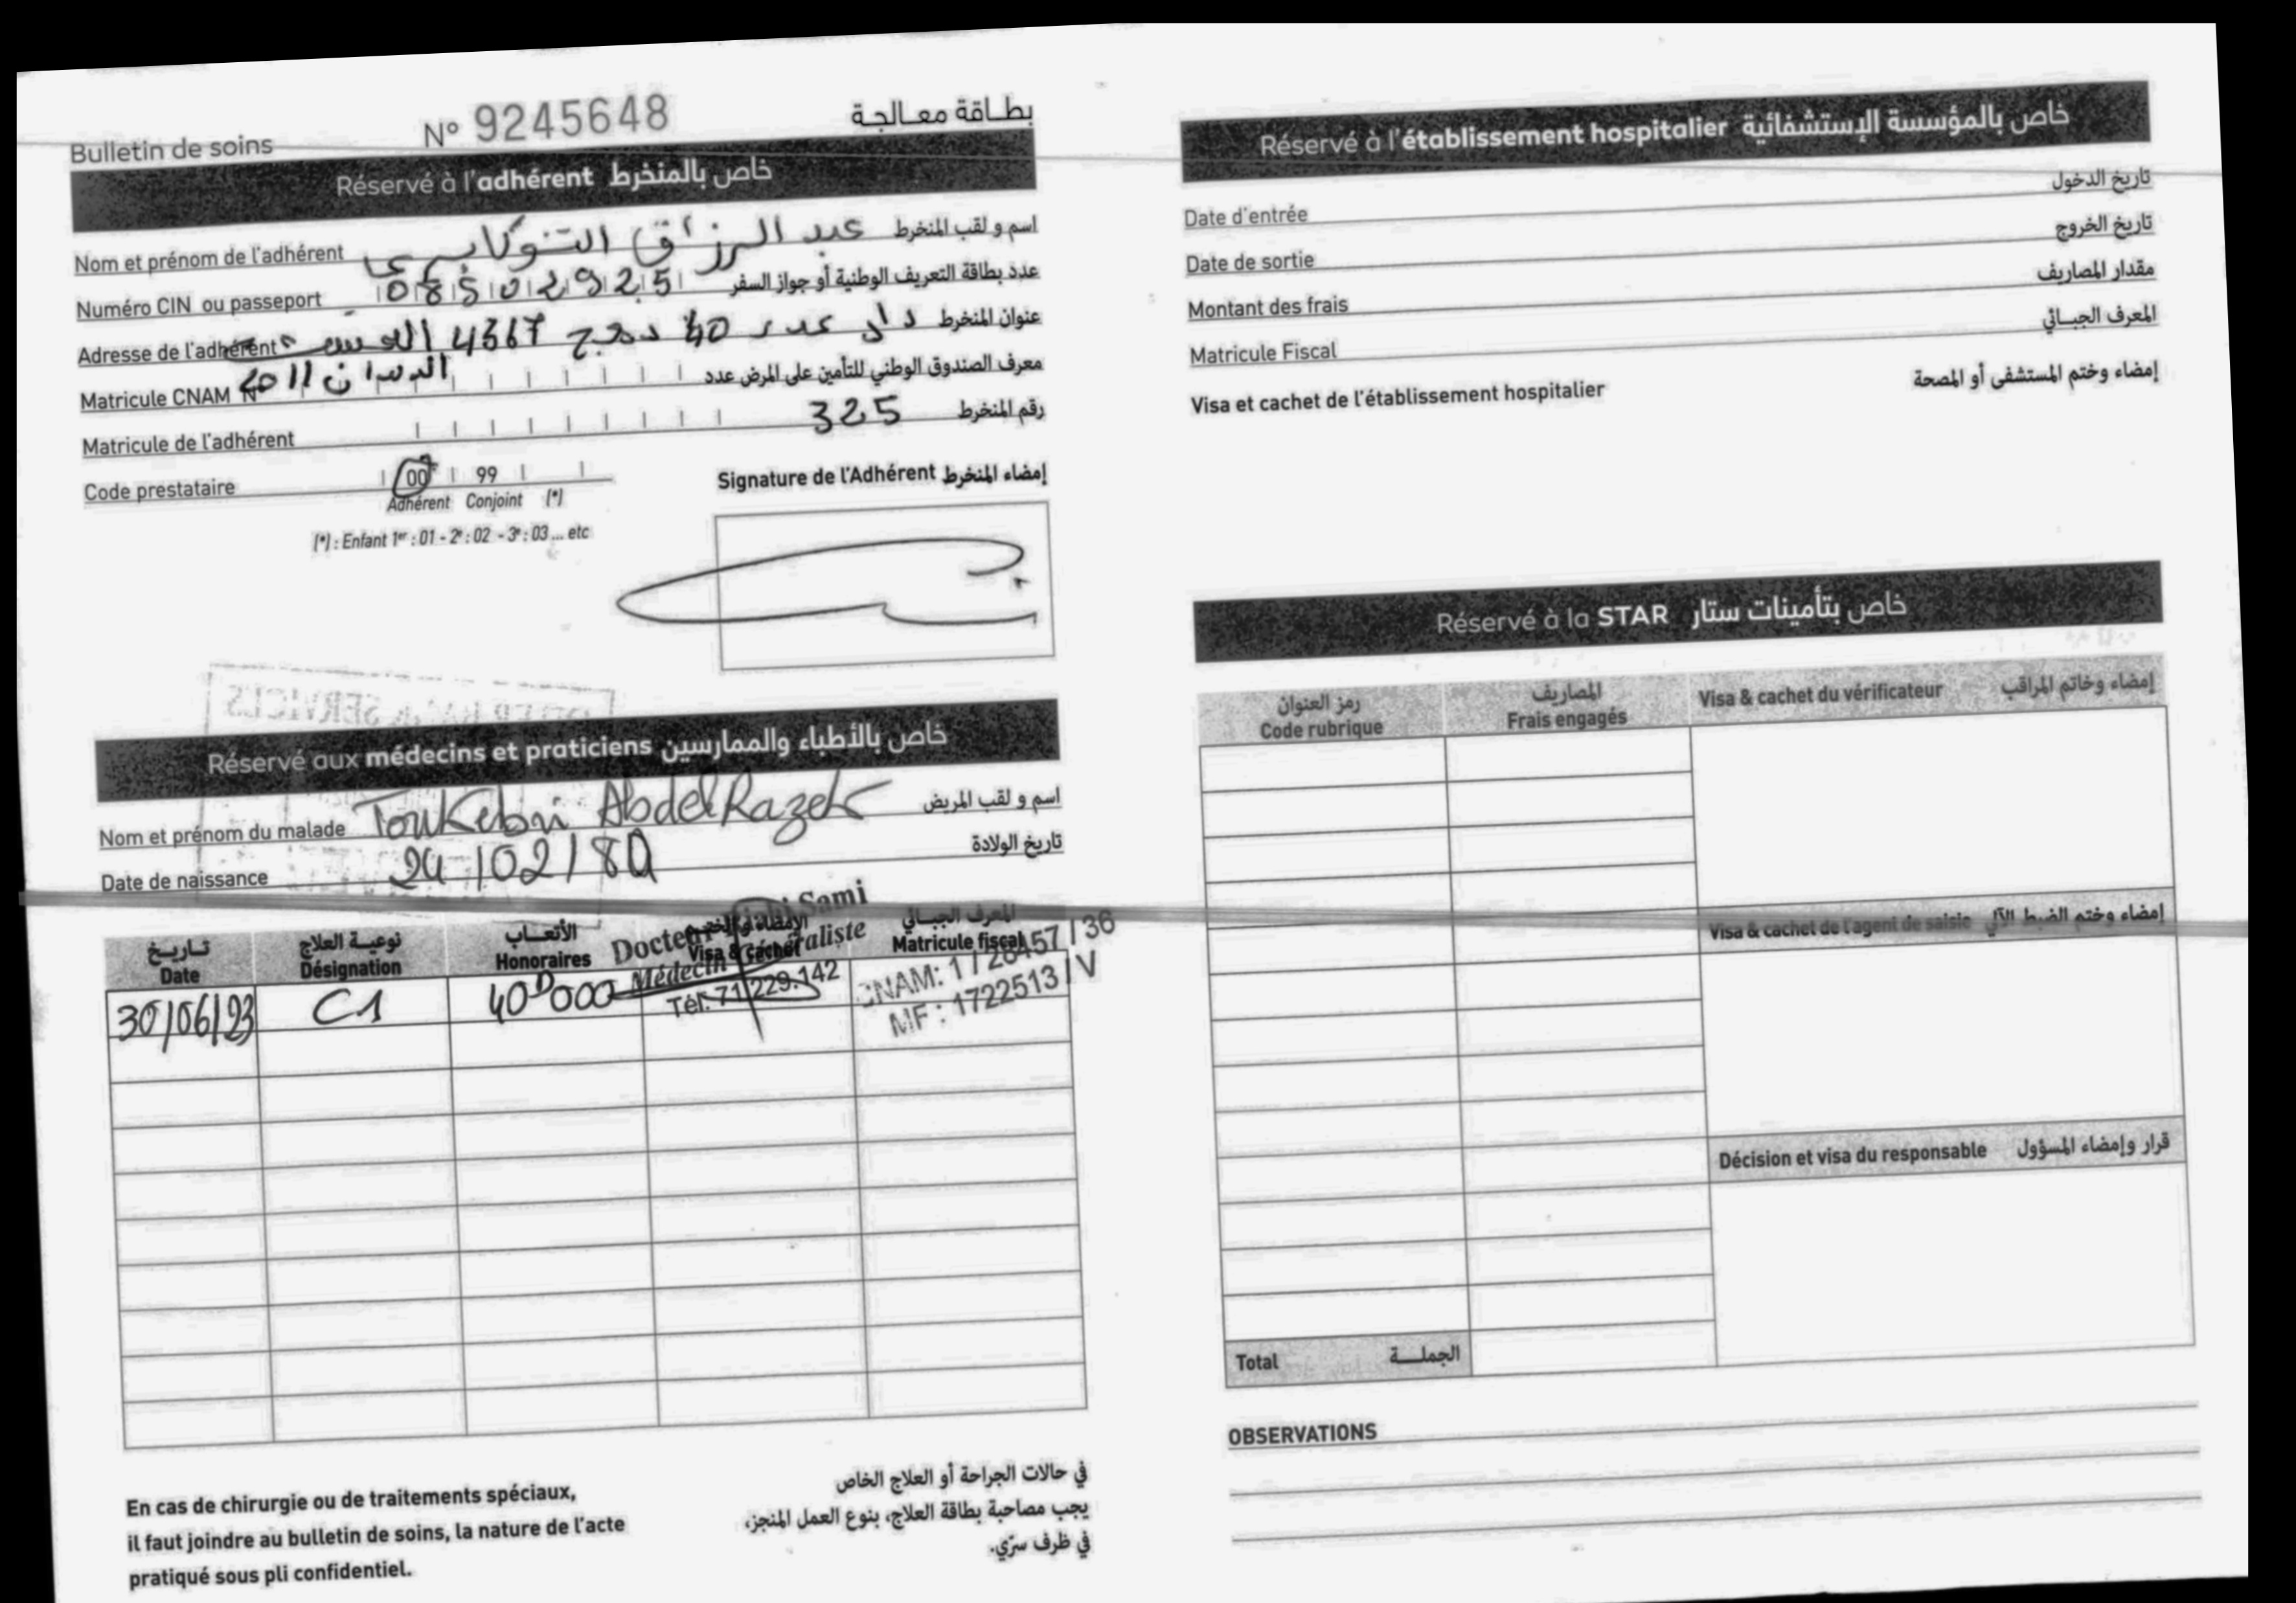 Bulletin de soins N° 9245648 بطاقة معالجة
Réservé à l'adhérent خاص بالمنخرط
Nom et prénom de l'adhérent عبد الرزاق التوكابري اسم و لقب المنخرط
Numéro CIN ou passeport 08502925 عدد بطاقة التعريف الوطنية أو جواز السفر
Adresse de l'adhérent دار عدد 40 نهج 4367 عنوان المنخرط
Matricule CNAM N° 2011 معرف الصندوق الوطني للتأمين على المرض عدد
Matricule de l'adhérent 325 رقم المنخرط
Code prestataire 00 99
Adhérent Conjoint (*)
(*) : Enfant 1er : 01 - 2e : 02 - 3e : 03 ... etc
Signature de l'Adhérent إمضاء المنخرط
Réservé aux médecins et praticiens خاص بالأطباء والممارسين
Nom et prénom du malade Toukebri AbdelRazek اسم و لقب المريض
Date de naissance 24/02/80 تاريخ الولادة
تاريخ نوعية العلاج الأتعاب الإمضاء والختم المعرف الجبائي
Date Désignation Honoraires Visa & cachet Matricule fiscal
30/06/23 C1 40D000
Docteur Sami
Médecin Généraliste
Tél: 71.229.142
CNAM: 1 / 26457 / 36
MF : 1722513 / V
En cas de chirurgie ou de traitements spéciaux,
il faut joindre au bulletin de soins, la nature de l'acte
pratiqué sous pli confidentiel.
في حالات الجراحة أو العلاج الخاص
يجب مصاحبة بطاقة العلاج، بنوع العمل المنجز،
في ظرف سرّي.
Réservé à l'établissement hospitalier خاص بالمؤسسة الإستشفائية
Date d'entrée تاريخ الدخول
Date de sortie تاريخ الخروج
Montant des frais مقدار المصاريف
Matricule Fiscal المعرف الجبائي
Visa et cachet de l'établissement hospitalier إمضاء وختم المستشفى أو المصحة
Réservé à la STAR خاص بتأمينات ستار
رمز العنوان المصاريف
Code rubrique Frais engagés
Visa & cachet du vérificateur إمضاء وخاتم المراقب
Visa & cachet de l'agent de saisie إمضاء وختم الضبط الآلي
Décision et visa du responsable قرار وإمضاء المسؤول
Total الجملة
OBSERVATIONS